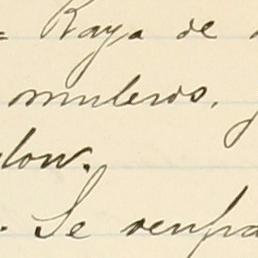 = Raya de
muleros.
low.
. Se